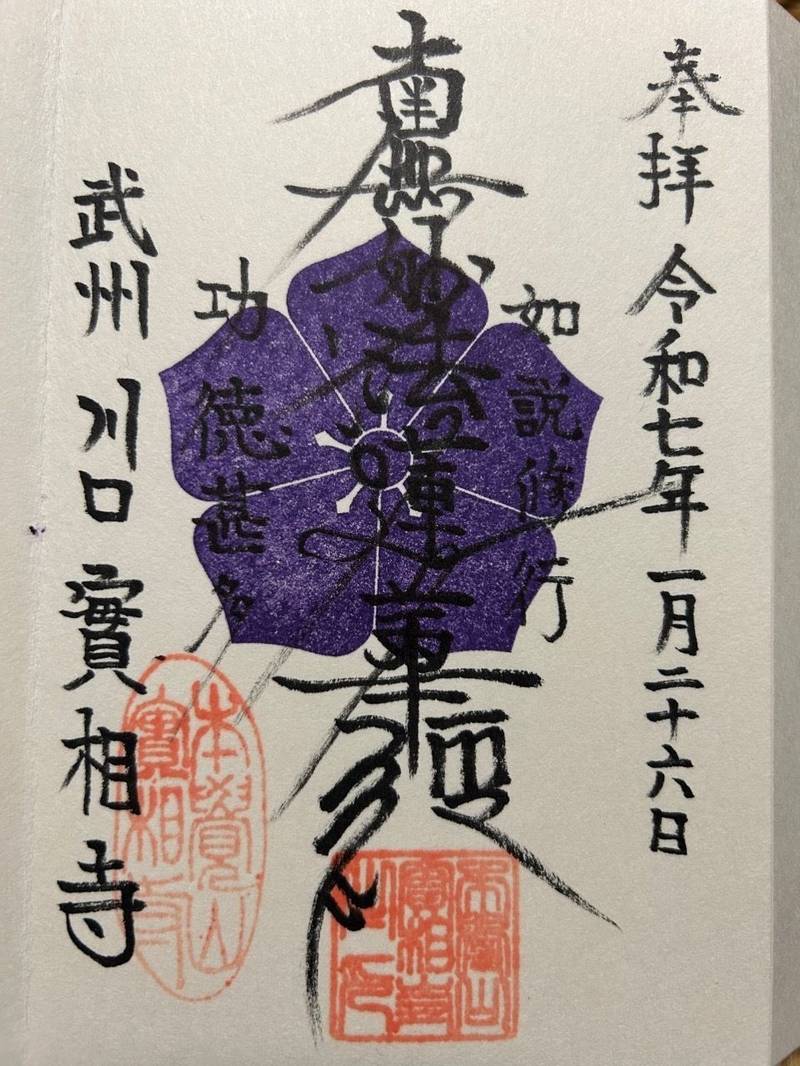 奉拝 令和七年一月二十六日
如説修行
南無妙法蓮華経
功徳甚多
武州 川口 實相寺
本覺山
實相寺
本覺山
實相寺
之印